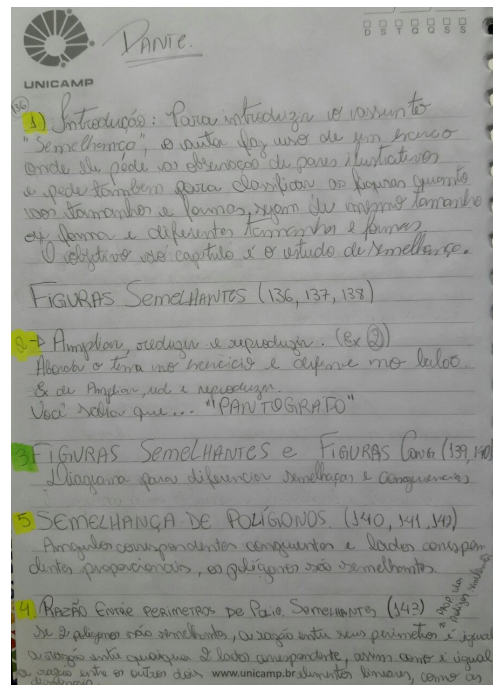 DANTE.
D S T Q Q S S
UNICAMP
136
1) Introdução: Para introduzir o assunto
"Semelhança", o autor faz uso de um
onde ele pede a observação de pares ilustrativos
e pede também para classificar as figuras quanto
aos tamanhos e formas, sejam de mesmo tamanho
ou forma e diferentes tamanhos e formas
O objetivo do capítulo é o estudo de semelhança.
FIGURAS SEMELHANTES (136, 137, 138)
2 → Ampliar, reduzir e reproduzir. (Ex 2)
Aborda o tema no exercício e define no balão
Ex de Ampliar, red e reproduzir.
Você sabia que... "PANTOGRAFO"
3 FIGURAS SEMELHANTES e FIGURAS CONG (139, 140)
Diagrama para diferenciar semelhaças e congruencias
5 SEMELHANÇA DE POLÍGONOS. (140, 141, 142)
Angulos correspondentes congruentes e lados correspon
dentes proporcionais, os polígonos são semelhantes.
4 RAZÃO ENTRE PERIMETROS DE POLIG. SEMELHANTES (143)
se 2 poligonos são semelhantes, a razão entre seus perimetros é igual
a razão entre quaisquer 2 lados correspondente, assim como é igual
a razão entre os outros dois elementos lineares, como as
www.unicamp.br